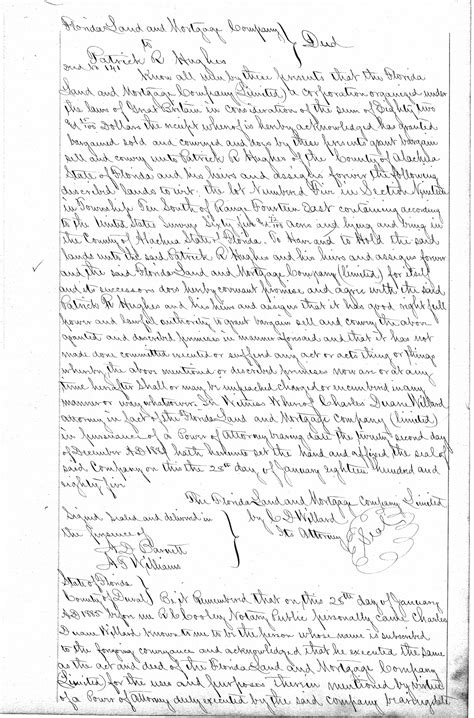 Florida Land and Mortgage Company
to } Deed
Patrick R Hughes
Deed No 141
Know all men by these presents that the Florida
Land and Mortgage Company Limited, a corporation organized under
the laws of Great Britain in consideration of the sum of Eighty two
Dollars the receipt whereof is hereby acknowledged has granted
bargained sold and conveyed and does by these presents grant bargain
sell and convey unto Patrick R Hughes of the County of Alachua
State of Florida and his heirs and assigns forever the following
described lands to wit. the lot Numbered Five in Section Nineteen
in Township Ten South of Range Fourteen East containing according
to the United States Survey Sixty five acres and lying and being in
the County of Alachua State of Florida. To Have and to Hold the said
lands unto the said Patrick R Hughes and his heirs and assigns forever
and the said Florida Land and Mortgage Company (limited) for itself
and its successors does hereby covenant promise and agree with the said
Patrick R Hughes and his heirs and assigns that it has good right full
power and lawful authority to grant bargain sell and convey the above
granted and described premises in manner aforesaid and that it has not
made done committed executed or suffered any act or acts thing or things
whereby the above mentioned or described premises now are or at any
time hereafter shall or may be impeached charged or incumbered in any
manner or way whatsoever. In Witness Whereof Charles Duane Willard
attorney in fact of the Florida Land and Mortgage Company (limited)
in pursuance of a Power of Attorney bearing date the twenty second day
of December A D hath hereunto set the hand and affixed the seal of
said Company on this the 28th day of January eighteen hundred and
eighty five
The Florida Land and Mortgage Company Limited
Signed Sealed and delivered in } by C D Willard
the presence of Its Attorney Seal
A D Barnett
A D Williams
State of Florida }
County of Duval } Be it Remembered that on this 28th day of January
A D 1885 before me R L Cooley Notary Public personally came Charles
Duane Willard known to me to be the person whose name is subscribed
to the foregoing conveyance and acknowledged that he executed the same
as the act and deed of the Florida Land and Mortgage Company
(Limited) for the uses and purposes therein mentioned by virtue
of a Power of Attorney duly executed by the said company bearing date